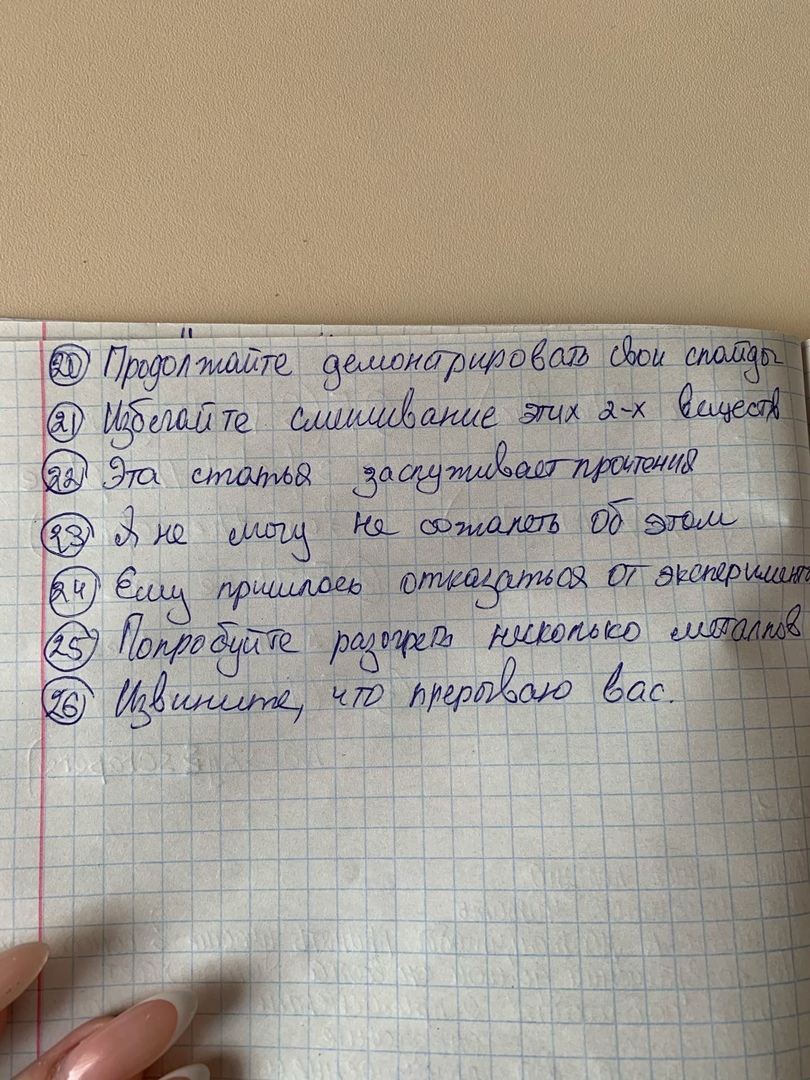 20 Продолжайте демонстрировать свои слайды
21 Избегайте смешивание этих 2-х веществ
22 Эта статья заслуживает прочтения
23 Я не могу не сожалеть об этом
24 Ему пришлось отказаться от эксперимента
25 Попробуйте разогреть несколько металлов
26 Извините, что прерываю вас.